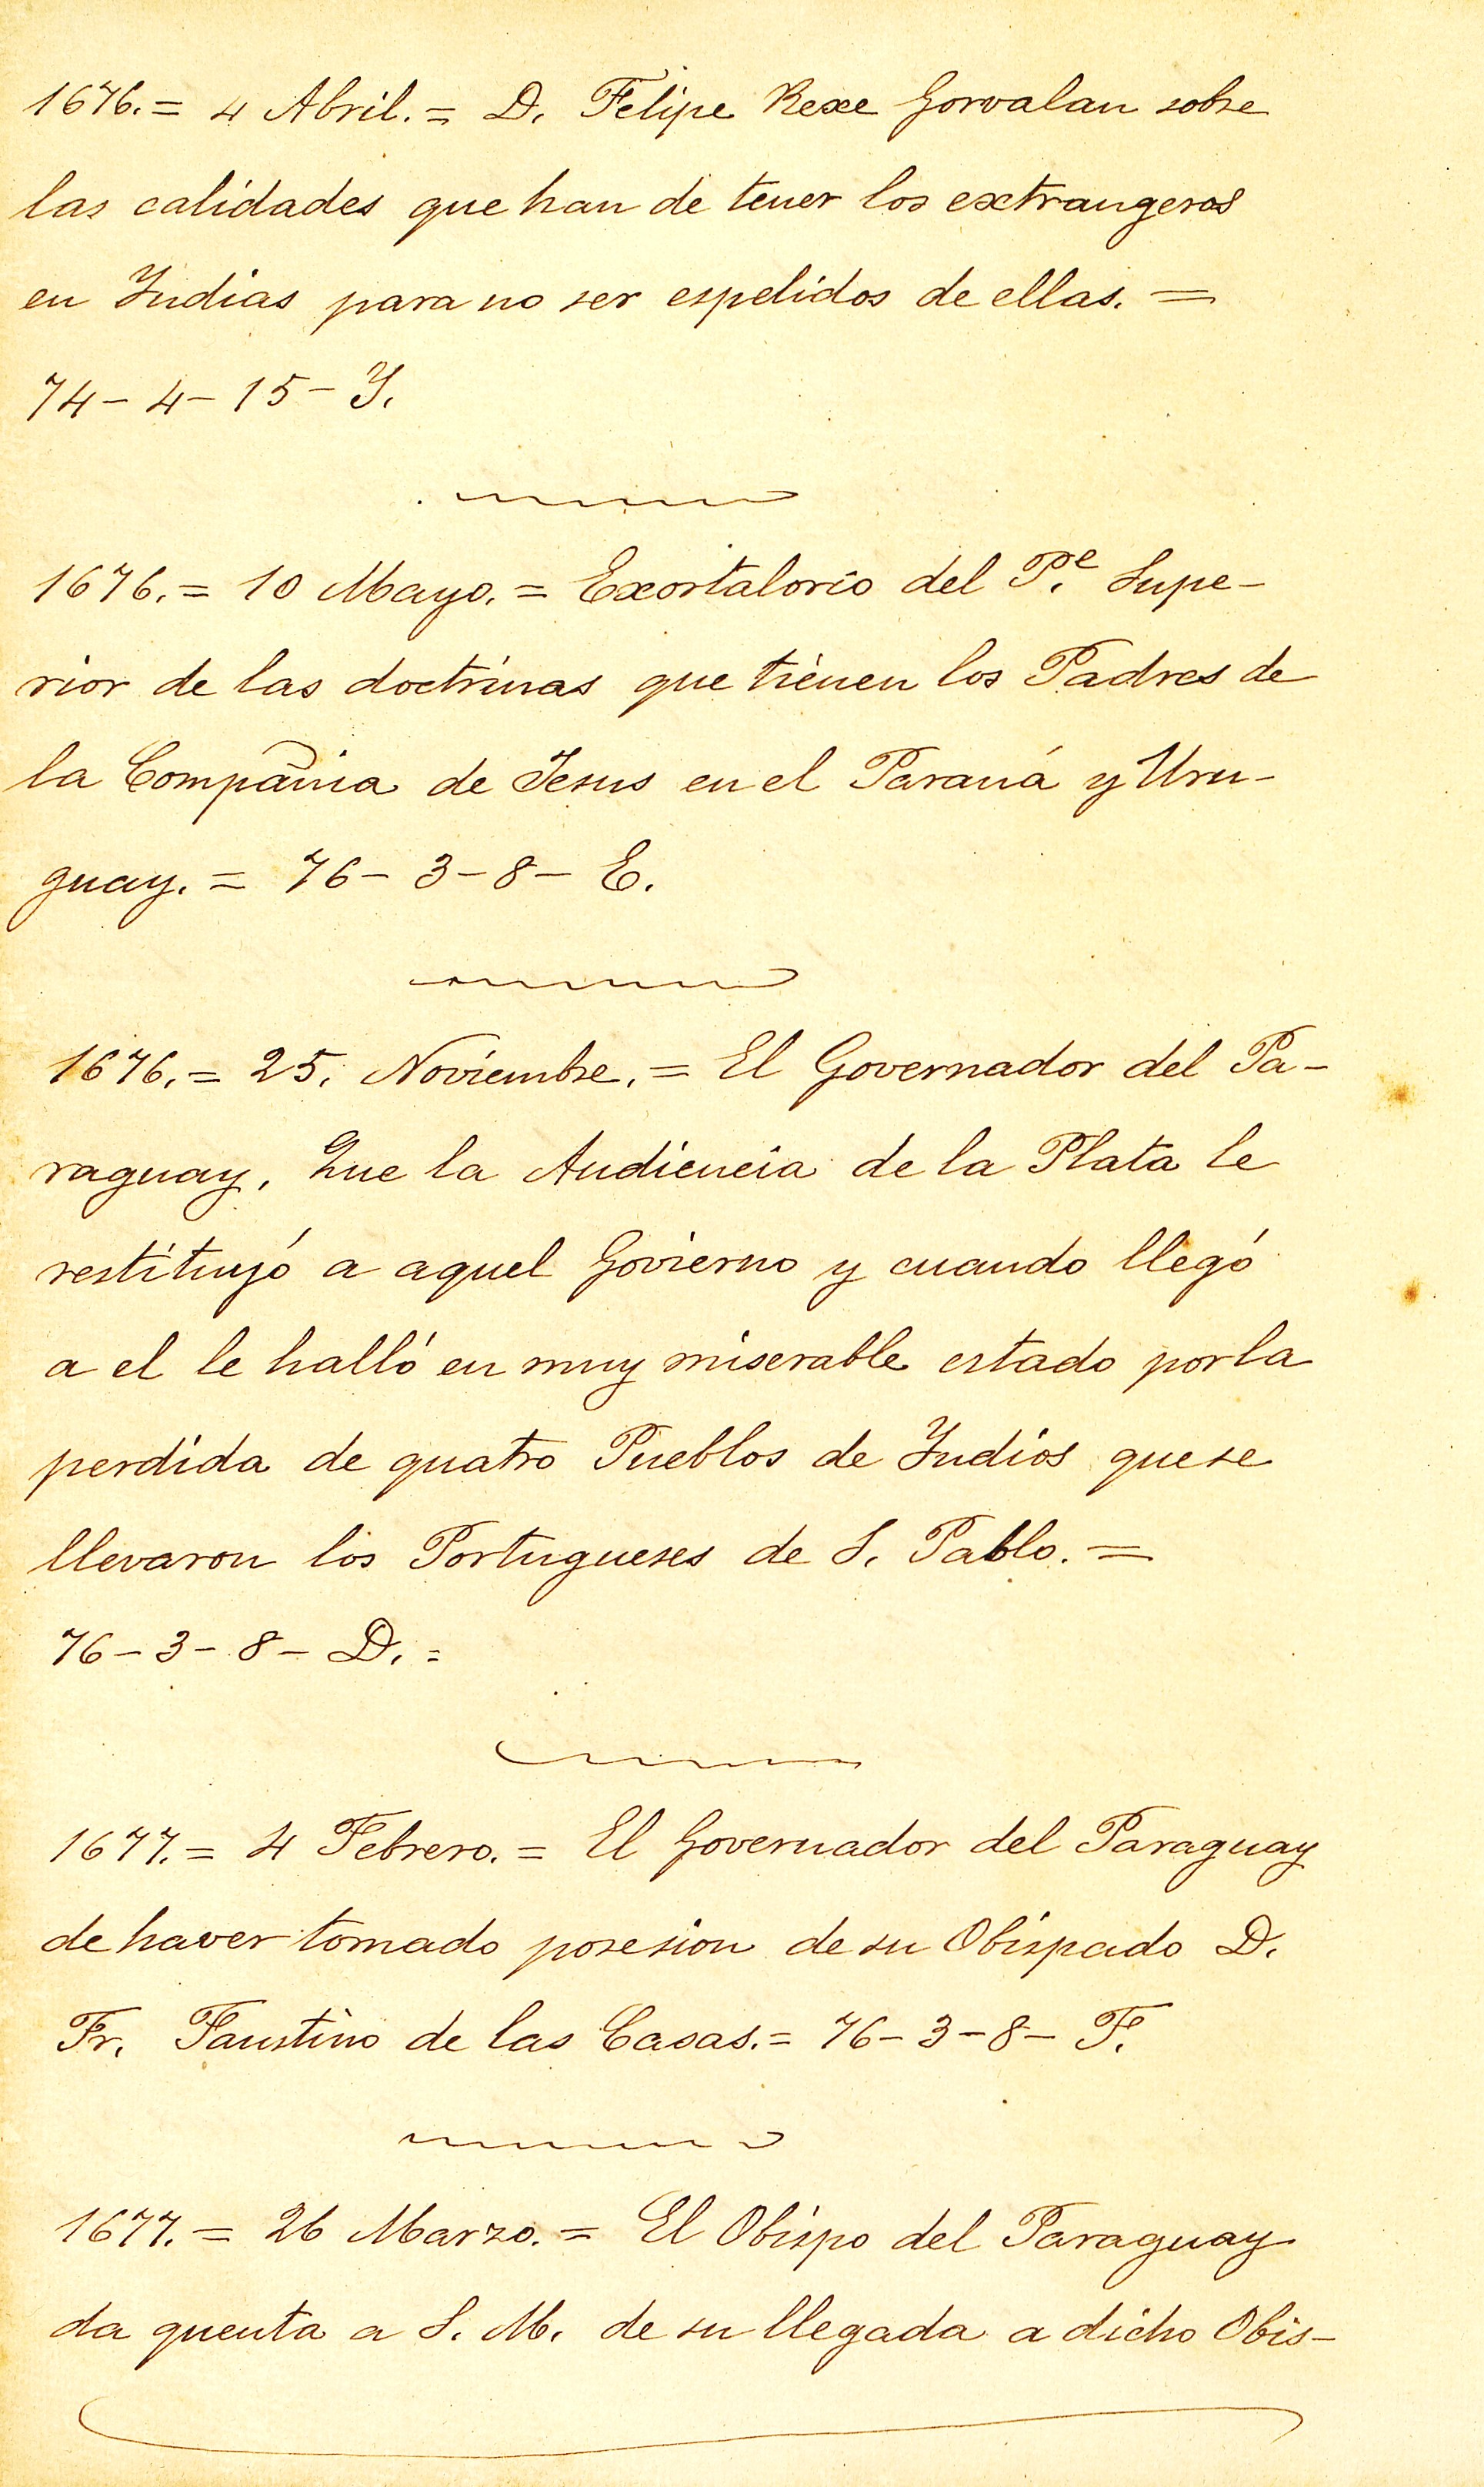 1676. = 4 Abril. = D. Felipe Rexe Gorvalan sobre
las calidades que han de tener los extrangeros
en Yndias para no ser espelidos de ellas. =
74 - 4 - 15 - Y.
1676. = 10 Mayo. = Exortalorio del P.e Supe-
rior de las doctrinas que tienen los Padres de
la Compañia de Jesus en el Paraná y Uru-
guay. = 76 - 3 - 8 - E.
1676. = 25. Noviembre. = El Governador del Pa-
raguay, Que la Audiencia de la Plata le
restituyó a aquel Govierno y cuando llegó
a el le halló en muy miserable estado por la
perdida de quatro Pueblos de Yndios que se
llevaron los Portugueses de S. Pablo. =
76 - 3 - 8 - D. =
1677. = 4 Febrero. = El Governador del Paraguay
de haver tomado posesion de su Obispado D.
Fr. Faustino de las Casas. = 76 - 3 - 8 - F.
1677. = 26 Marzo. = El Obispo del Paraguay
da quenta a S. M. de su llegada a dicho Obis-